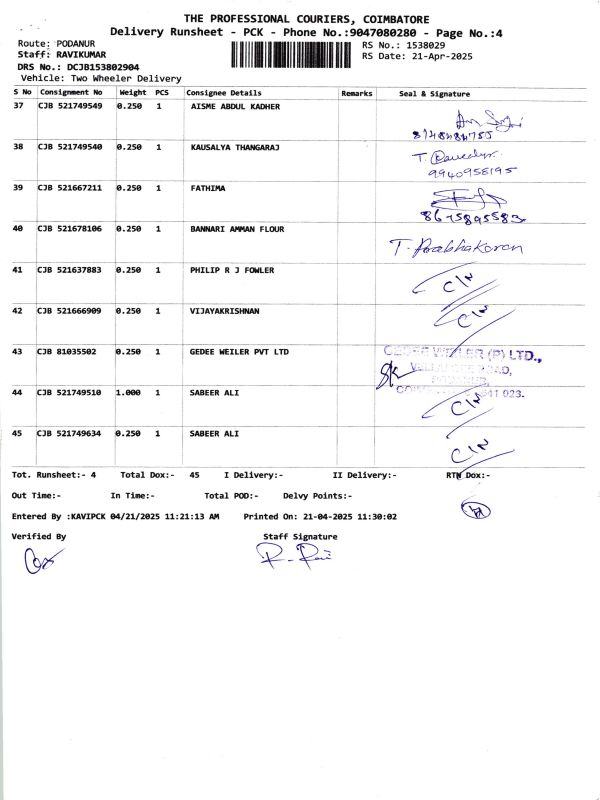 THE PROFESSIONAL COURIERS, COIMBATORE
Delivery Runsheet - PCK - Phone No.:9047080280 - Page No.:4
Route: PODANUR RS No.: 1538029
Staff: RAVIKUMAR RS Date: 21-Apr-2025
DRS No.: DCJB153802904
Vehicle: Two Wheeler Delivery
S No Consignment No Weight PCS Consignee Details Remarks Seal & Signature
37 CJB 521749549 0.250 1 AISME ABDUL KADHER
38 CJB 521749540 0.250 1 KAUSALYA THANGARAJ
9940956195
39 CJB 521667211 0.250 1 FATHIMA
40 CJB 521678106 0.250 1 BANNARI AMMAN FLOUR T. Prabhakaran
41 CJB 521637883 0.250 1 PHILIP R J FOWLER C/N
42 CJB 521666909 0.250 1 VIJAYAKRISHNAN C/N
43 CJB 81035502 0.250 1 GEDEE WEILER PVT LTD GEDEE WEILER (P) LTD.,
44 CJB 521749510 1.000 1 SABEER ALI C/N
45 CJB 521749634 0.250 1 SABEER ALI C/N
Tot. Runsheet:- 4 Total Dox:- 45 I Delivery:- II Delivery:- RTN Dox:-
Out Time:- In Time:- Total POD:- Delvy Points:-
Entered By :KAVIPCK 04/21/2025 11:21:13 AM Printed On: 21-04-2025 11:30:02
Verified By Staff Signature